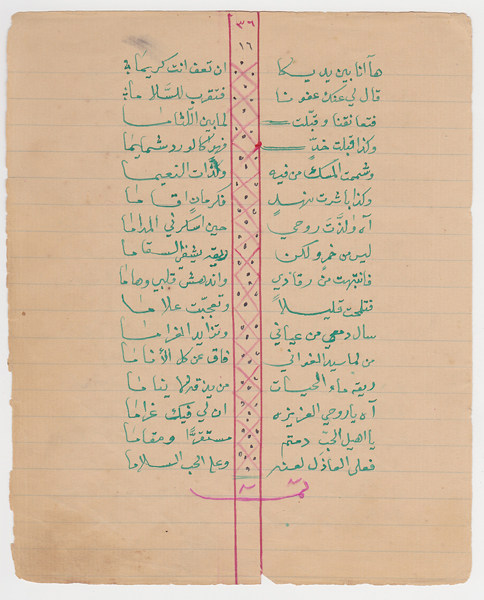 ٣٦
١٦
ها أنا بين يديكا ان تعف انت كريما
قال لي عنك عفونا فتقرب للسلاما
فتعانقنا وقبلت لما بين اللثاما
وكذا قبلت خدّ زهرًا كالورد شميما
وشممت المسك من فيه ولذّات النعيما
وكذا باشرت نهد
آه ولذّت روحي حين اسكرني المداما
ليس من خمرٍ ولكن ريقه يشفي السقاما
فانتبهت من رقادي واندهش قلبي وهاما
قليلاً وتعجبت علاما
سال دمعي من عياني وتزايد الغراما
من لما سيد الغواني فاق عن كل الأناما
ريقه ماء الحيات من يذقه لا يناما
آه يا روحي العزيزه ان لي فيك غراما
يا اهيل الحبّ دمتم مستقرًّا ومقاما
فعلى العاذل لعنه وعلى الحب السلاما
تمت